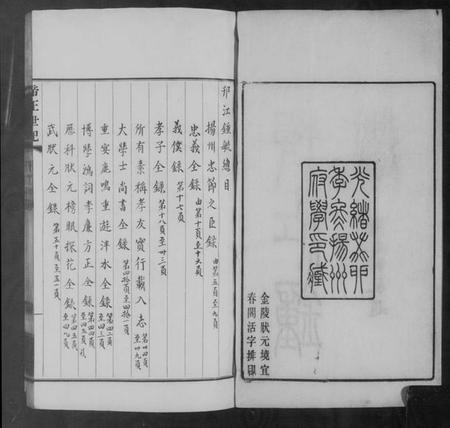 光緒癸卯
季冬揚州
府學印藏
金陵狀元境宜
春閣活字排印
邗江鍾毓總目
揚州忠節之臣錄 由第五頁至九頁
忠義全錄 由第十頁至十六頁
義僕錄 第十七頁
孝子全錄 第十八頁至卅三頁
所有素稱孝友實行載入志 第卅四頁至卅九頁
大學士尚書全錄 第四拾頁至四十一頁
重宴鹿鳴重遊泮水全錄 第四二頁至四三頁
博學鴻詞孝廉方正全錄 第四四頁
歷科狀元榜眼探花全錄 第四五頁至四九頁
武狀元全錄 第五十頁至五一頁